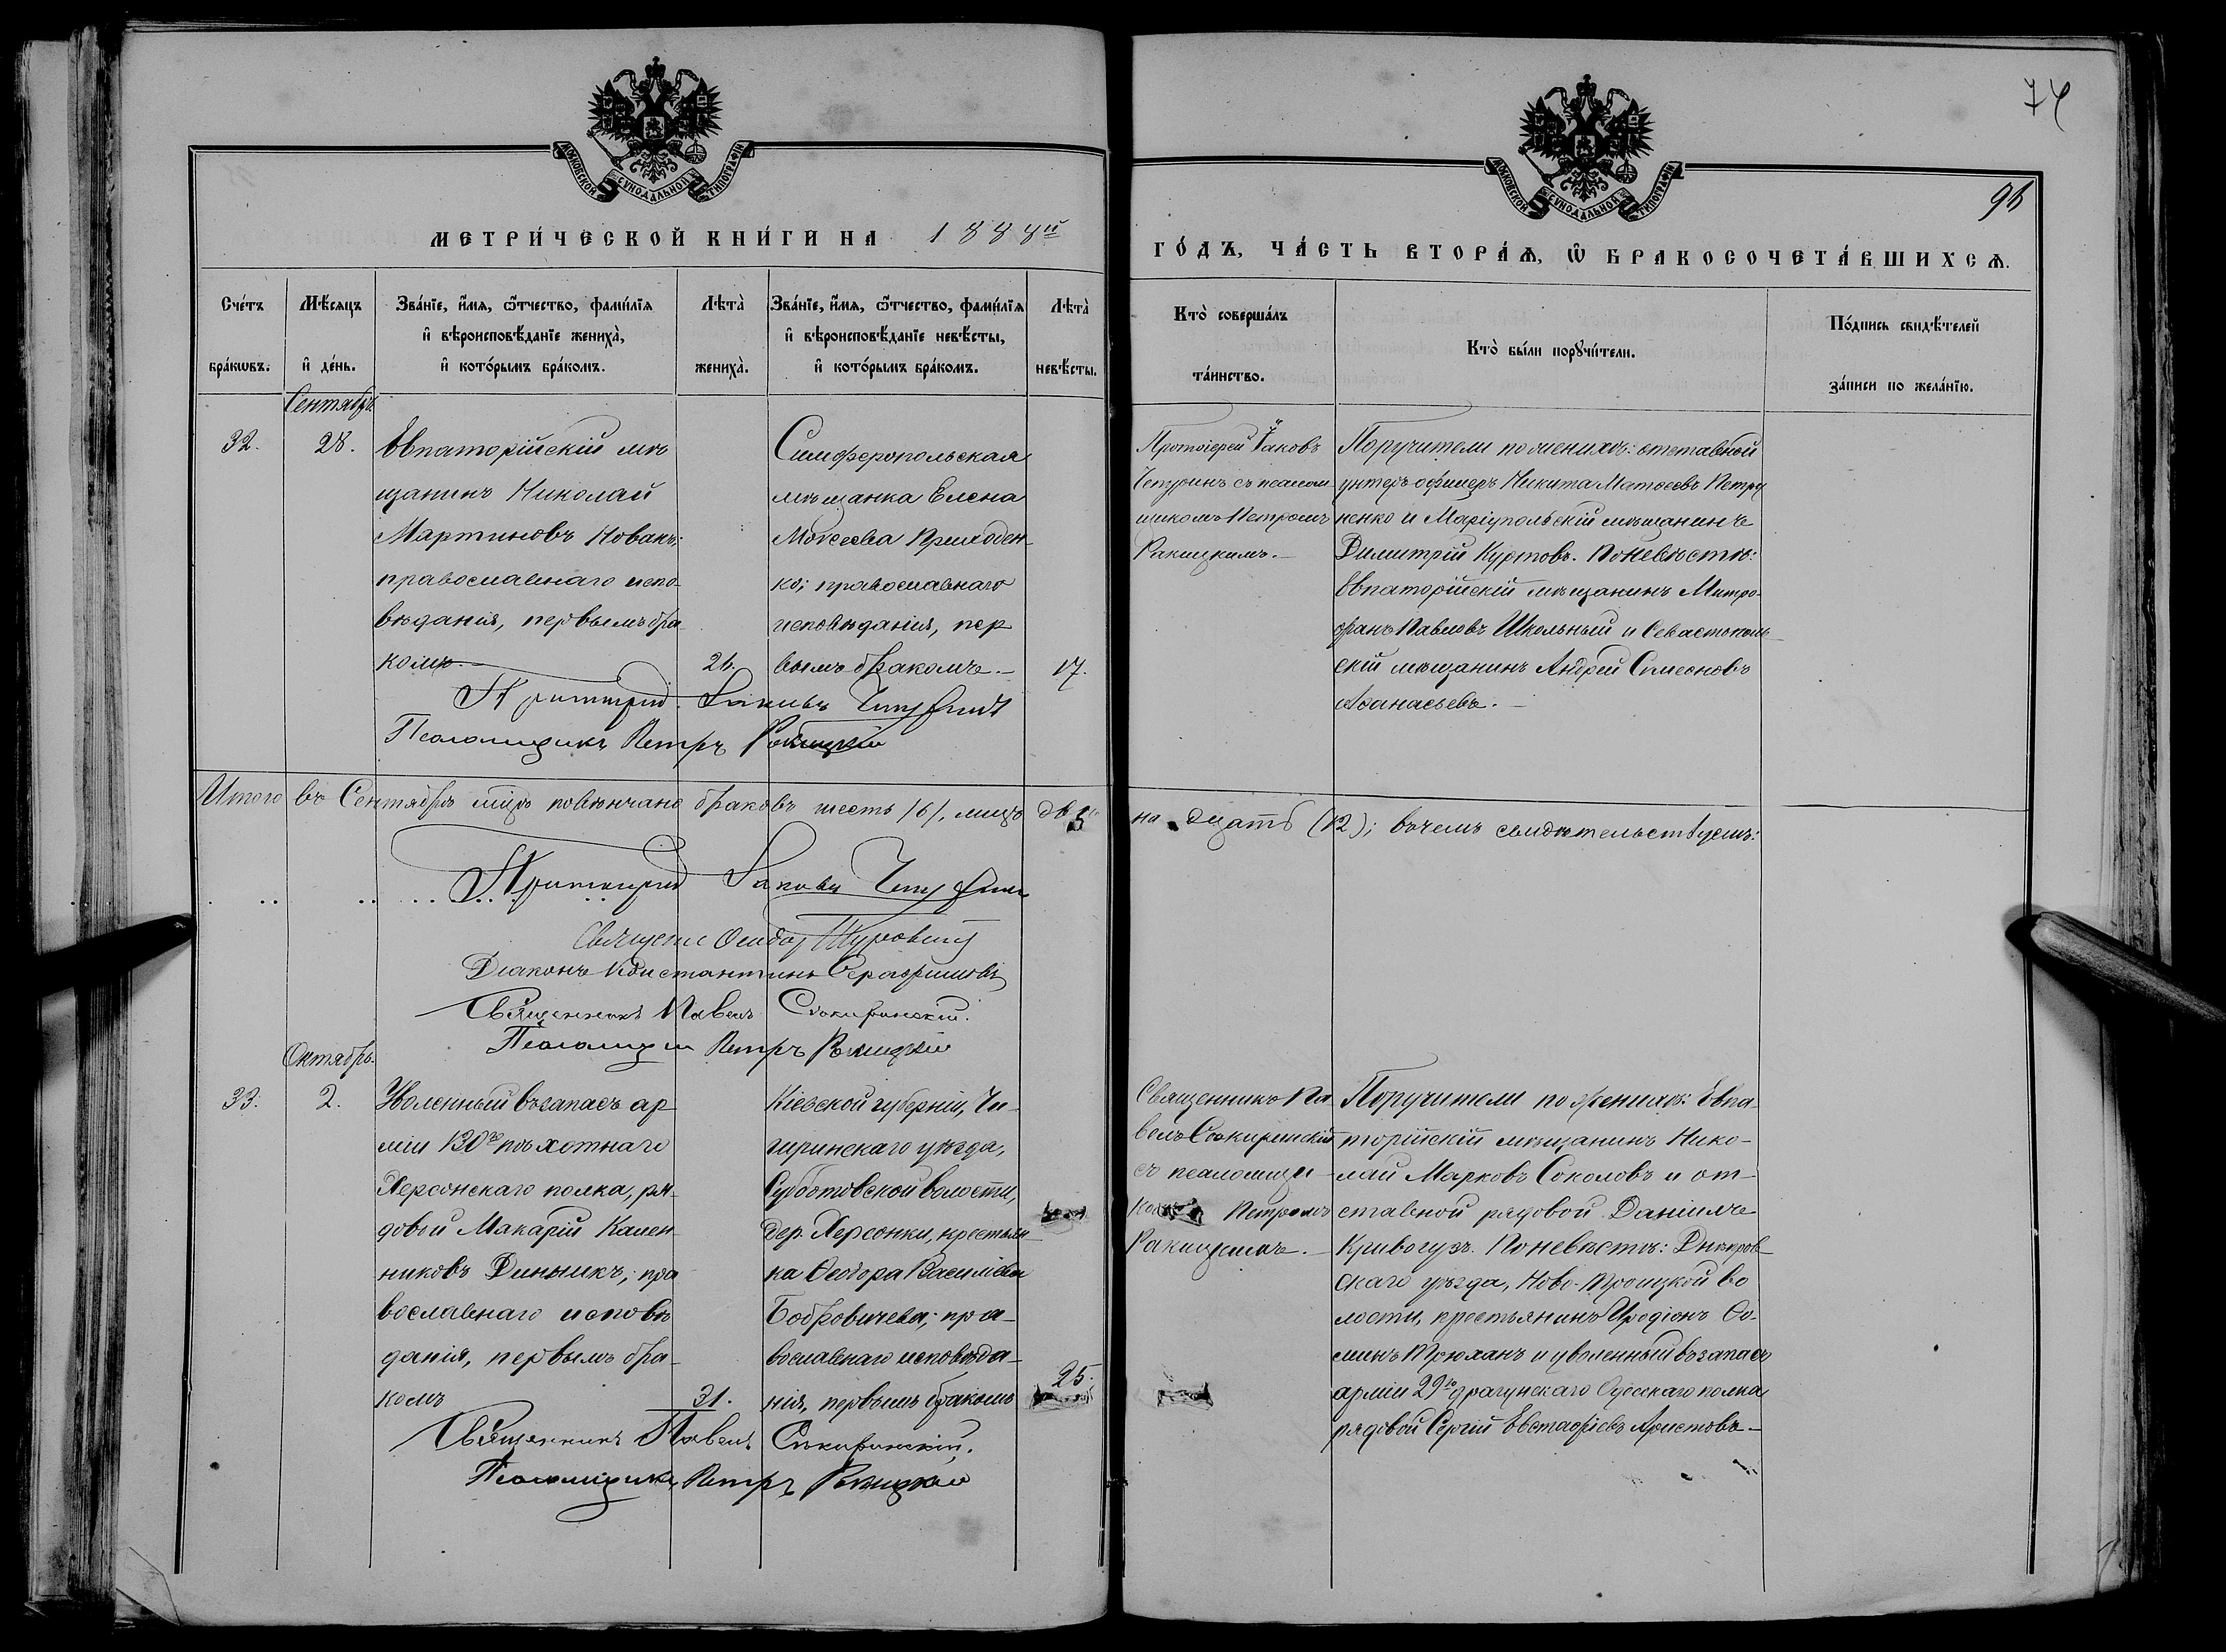 74
96
МОСКОВСКОЙ СѴНОДАЛЬНОЙ ТИПОГРАФІИ
МОСКОВСКОЙ СѴНОДАЛЬНОЙ ТИПОГРАФІИ
МЕТРИ́ЧЕСКОЙ КНИ́ГИ НА 1888й
ГО́ДЪ, ЧА́СТЬ ВТОРА́Ѧ, Ѽ БРАКОСОЧЕТА́ВШИХСѦ.
Сче́тъ бра́кѡвъ.
Мѣ́сяцъ и҆ де́нь.
Зва́нїе, и҆́мя, ѻ҆́тчество, фами́лїя
и҆ вѣроисповѣ́данїе жениха̀,
и҆ кото́рымъ бра́комъ.
Лѣта̀ жениха̀.
Зва́нїе, и҆́мя, ѻ҆́тчество, фами́лїя
и҆ вѣроисповѣ́данїе невѣ́сты,
и҆ кото́рымъ бра́комъ.
Лѣта̀ невѣ́сты.
Кто̀ соверша́лъ та́инство.
Кто̀ бы́ли порꙋчи́тели.
По́дпись свидѣ́телей за́писи по жела́нїю.
Сентябрь
32.
28.
Евпаторійскій мѣ
щанинъ Николай
Мартиновъ Новакъ;
православнаго испо-
вѣданія, первымъ бра
комъ.
26.
Симферопольская
мѣщанка Елена
Моѵсеева Приходен-
ко; православнаго
исповѣданія, пер
вымъ бракомъ.
17.
Протоіерей Іаковъ
Чепуринъ съ псалом-
щикомъ Петромъ
Ракицкимъ.
Поручители по женихѣ: отставной
унтеръ-офицеръ Никита Матѳеевъ Петру
ненко и Маріупольскій мѣщанинъ
Димитрій Куртовъ. По невѣстѣ:
Евпаторійскій мѣщанинъ Митро-
фанъ Павловъ Школьный и Севастополь-
скій мѣщанинъ Андрей Симеоновъ
Аѳанасьевъ.
Протоіерей Іаковъ Чепуринъ
Псаломщикъ Петръ Ракицкій
Итого въ Сентябрѣ мцѣ повѣнчано браковъ шесть /6/, лицъ двѣ
надцать (12); въ чемъ свидѣтельствуемъ:
Протоіерей Іаковъ Чепуринъ
Діаконъ Константинъ Серафимовъ
Священникъ Павелъ Сокиринскій.
Псаломщик Петръ Ракицкій
Октябрь.
33.
2.
Уволенный въ запасъ ар
міи 130го пѣхотнаго
Херсонскаго полка, ря-
довой Макарій Калин
никовъ Динникъ; пра
вославнаго исповѣ
данія, первымъ бра-
комъ
31.
Кіевской губерніи, Чи-
гиринскаго уѣзда,
Субботовской волости,
дер. Херсонки, крестьян
ка Ѳеодора Васильева
Бобровичева; пра-
вославнаго исповѣда-
нія, первымъ бракомъ
25.
Священникъ Па
велъ Сокиринскій
съ псаломщи-
комъ Петромъ
Ракицкимъ.
Поручители по женихѣ: Евпа-
торійскій мѣщанинъ Нико-
лай Марковъ Соколовъ и от-
ставной рядовой Даніилъ
Кривогузъ. По невѣстѣ: Днѣпров-
скаго уѣзда, Ново-Троицкой во
лости, крестьянинъ Иродіонъ Ѳо-
минъ Трюханъ и уволенный въ запасъ
арміи 29го драгунскаго Одесскаго полка
рядовой Сергій Евстафіевъ Аристовъ.
Священникъ Павелъ Сокиринскій.
Псаломщикъ Петръ Ракицкій